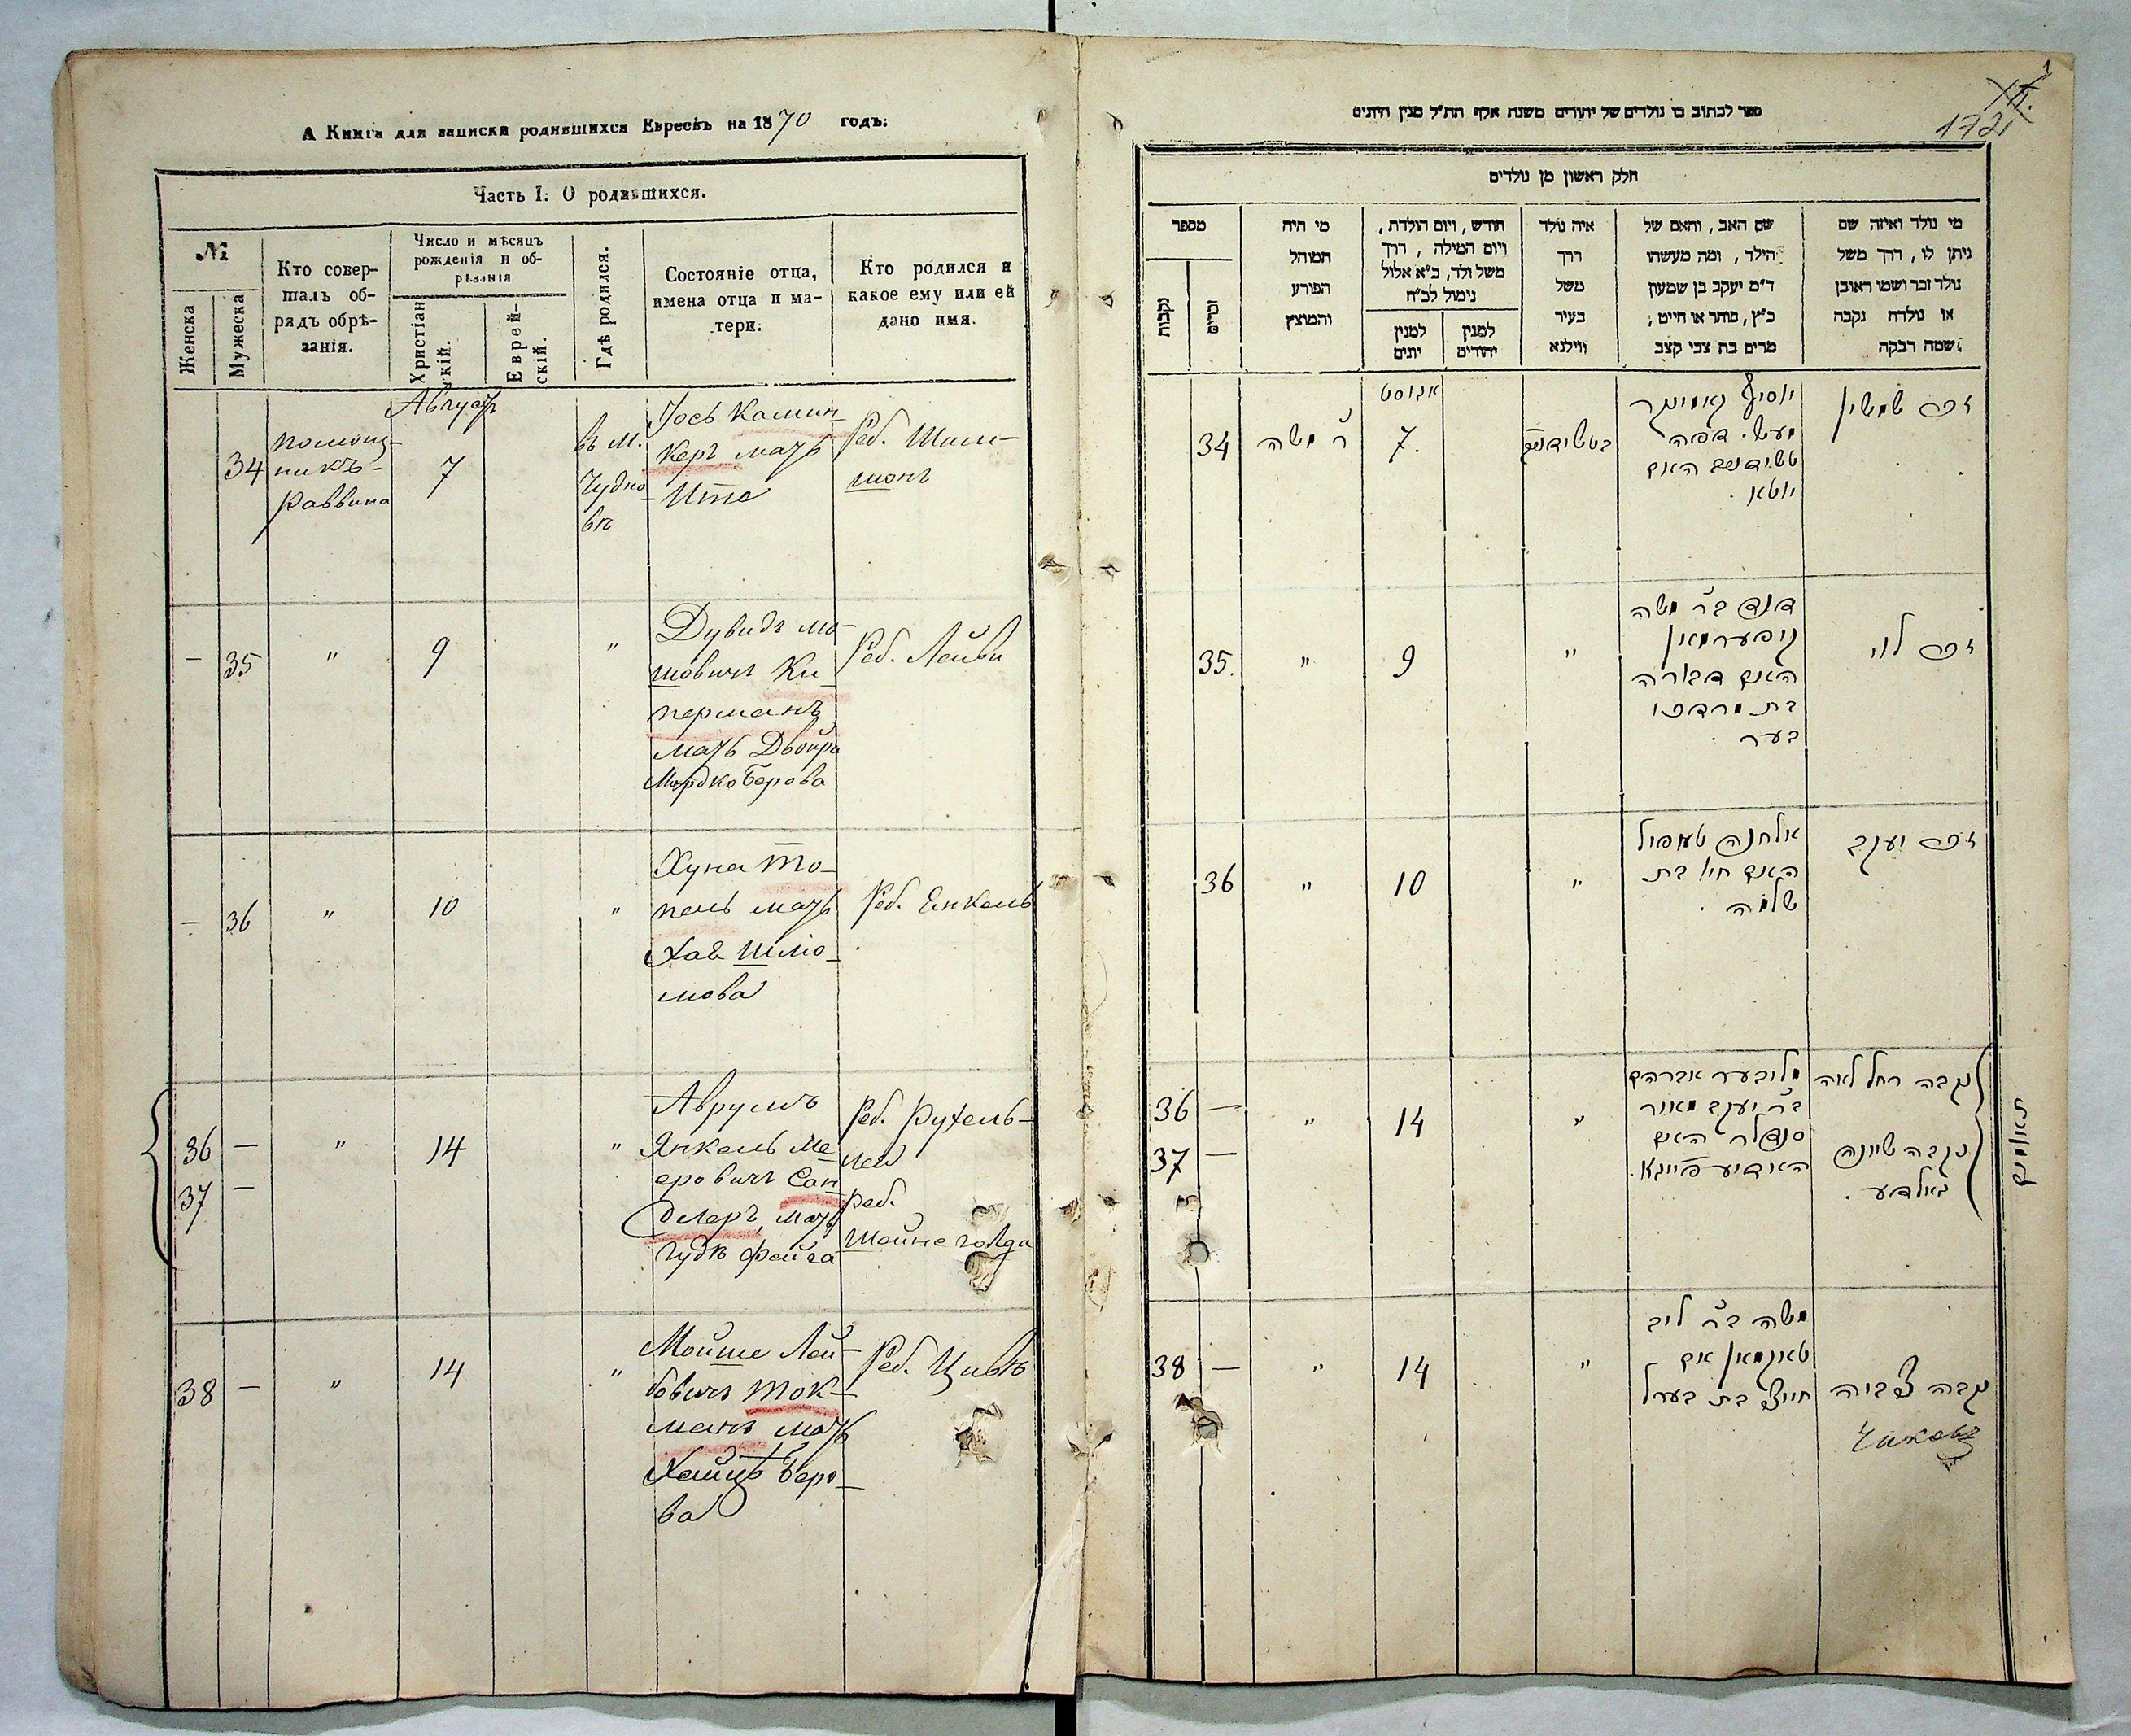 А Книга для записки родившихся Евреевъ на 1870 годъ.
Часть I. О родившихся.
№
Женска
Мужеска
Кто совер-
шалъ об-
рядъ обрѣ-
занія.
Число и мѣсяцъ
рожденія и об-
рѣзанія
Христіан
скій.
Еврей-
скій.
Гдѣ родился.
Состояніе отца,
имена отца и ма-
тери.
Кто родился и
какое ему или ей
дано имя.
Августъ
34
помощ-
никъ
Раввина
7
въ м.
Чудно-
вѣ
Іось Камин-
керъ мать
Ита
Реб. Шим-
шонъ
–
35
"
9
"
Дувидъ мо-
шовичъ Ки-
перманъ
мать Двойра
Мордко Берова
Реб. Лейви
–
36
"
10
"
Хуна То-
пель мать
Хая Шлio-
мова
Реб. Енкель
36 –
37 –
"
14
"
Аврумъ
Янкель Ме-
еровичъ Сан-
длеръ, мать
Гудя Фейга
Реб. Рухель-
лея
Реб.
Шейне голда
38 –
"
14
"
Мойше Лей-
бовичъ Ток-
манъ мать
Хайця Беро-
ва
Реб. Цивiя
ספר לכתוב בו נולדים של יהודים משנת אלף תת"ל מנין היונים
172
חלק ראשון מן נולדים
מספר
נקבות
זכרים
מי היה
המוהל
הפורע
והמוצץ
חודש, ויום הולדת,
ויום המילה, דרך
משל ולד, כ"א אלול
נימול לכ"ח
למנין
יונים
למנין
יהודים
איה נולד
דרך
משל
בעיר
ווילנא
שם האב, והאם של
הילד, ומה מעשהו
ד"מ יעקב בן שמעון
כ"ץ, סוחר או חייט,
מרים בת צבי קצב
מי נולד ואיזה שם
ניתן לו, דרך משל
נולד זכר ושמו ראובן
או נולדה נקבה
ושמה רבקה
אגוסט
34
ר' משה
7.
בטשידנוב
יוסיף קאמינקר
מעש. דפה
טשידנוב האם
יוטא.
זכר שמשון
35.
"
9
"
דוד ב"ר משה
קיפערמאן
האם דבורה
בת מרדכי
בער.
זכר לוי
36
"
10
"
אלחנן טאפול
האם חיה בת
שלמה.
זכר יעקב
36 –
37 –
"
14
"
אברהם
ב"ר יעקב מאיר
סנדלר האם
האדיע פייגא.
נקבה רחל לאה
נקבה שיינה
גאלדע.
תאומים
38 –
"
14
"
משה ב"ר ליב
טאקמאן אם
חייצי בת בערל
נקבה צביה